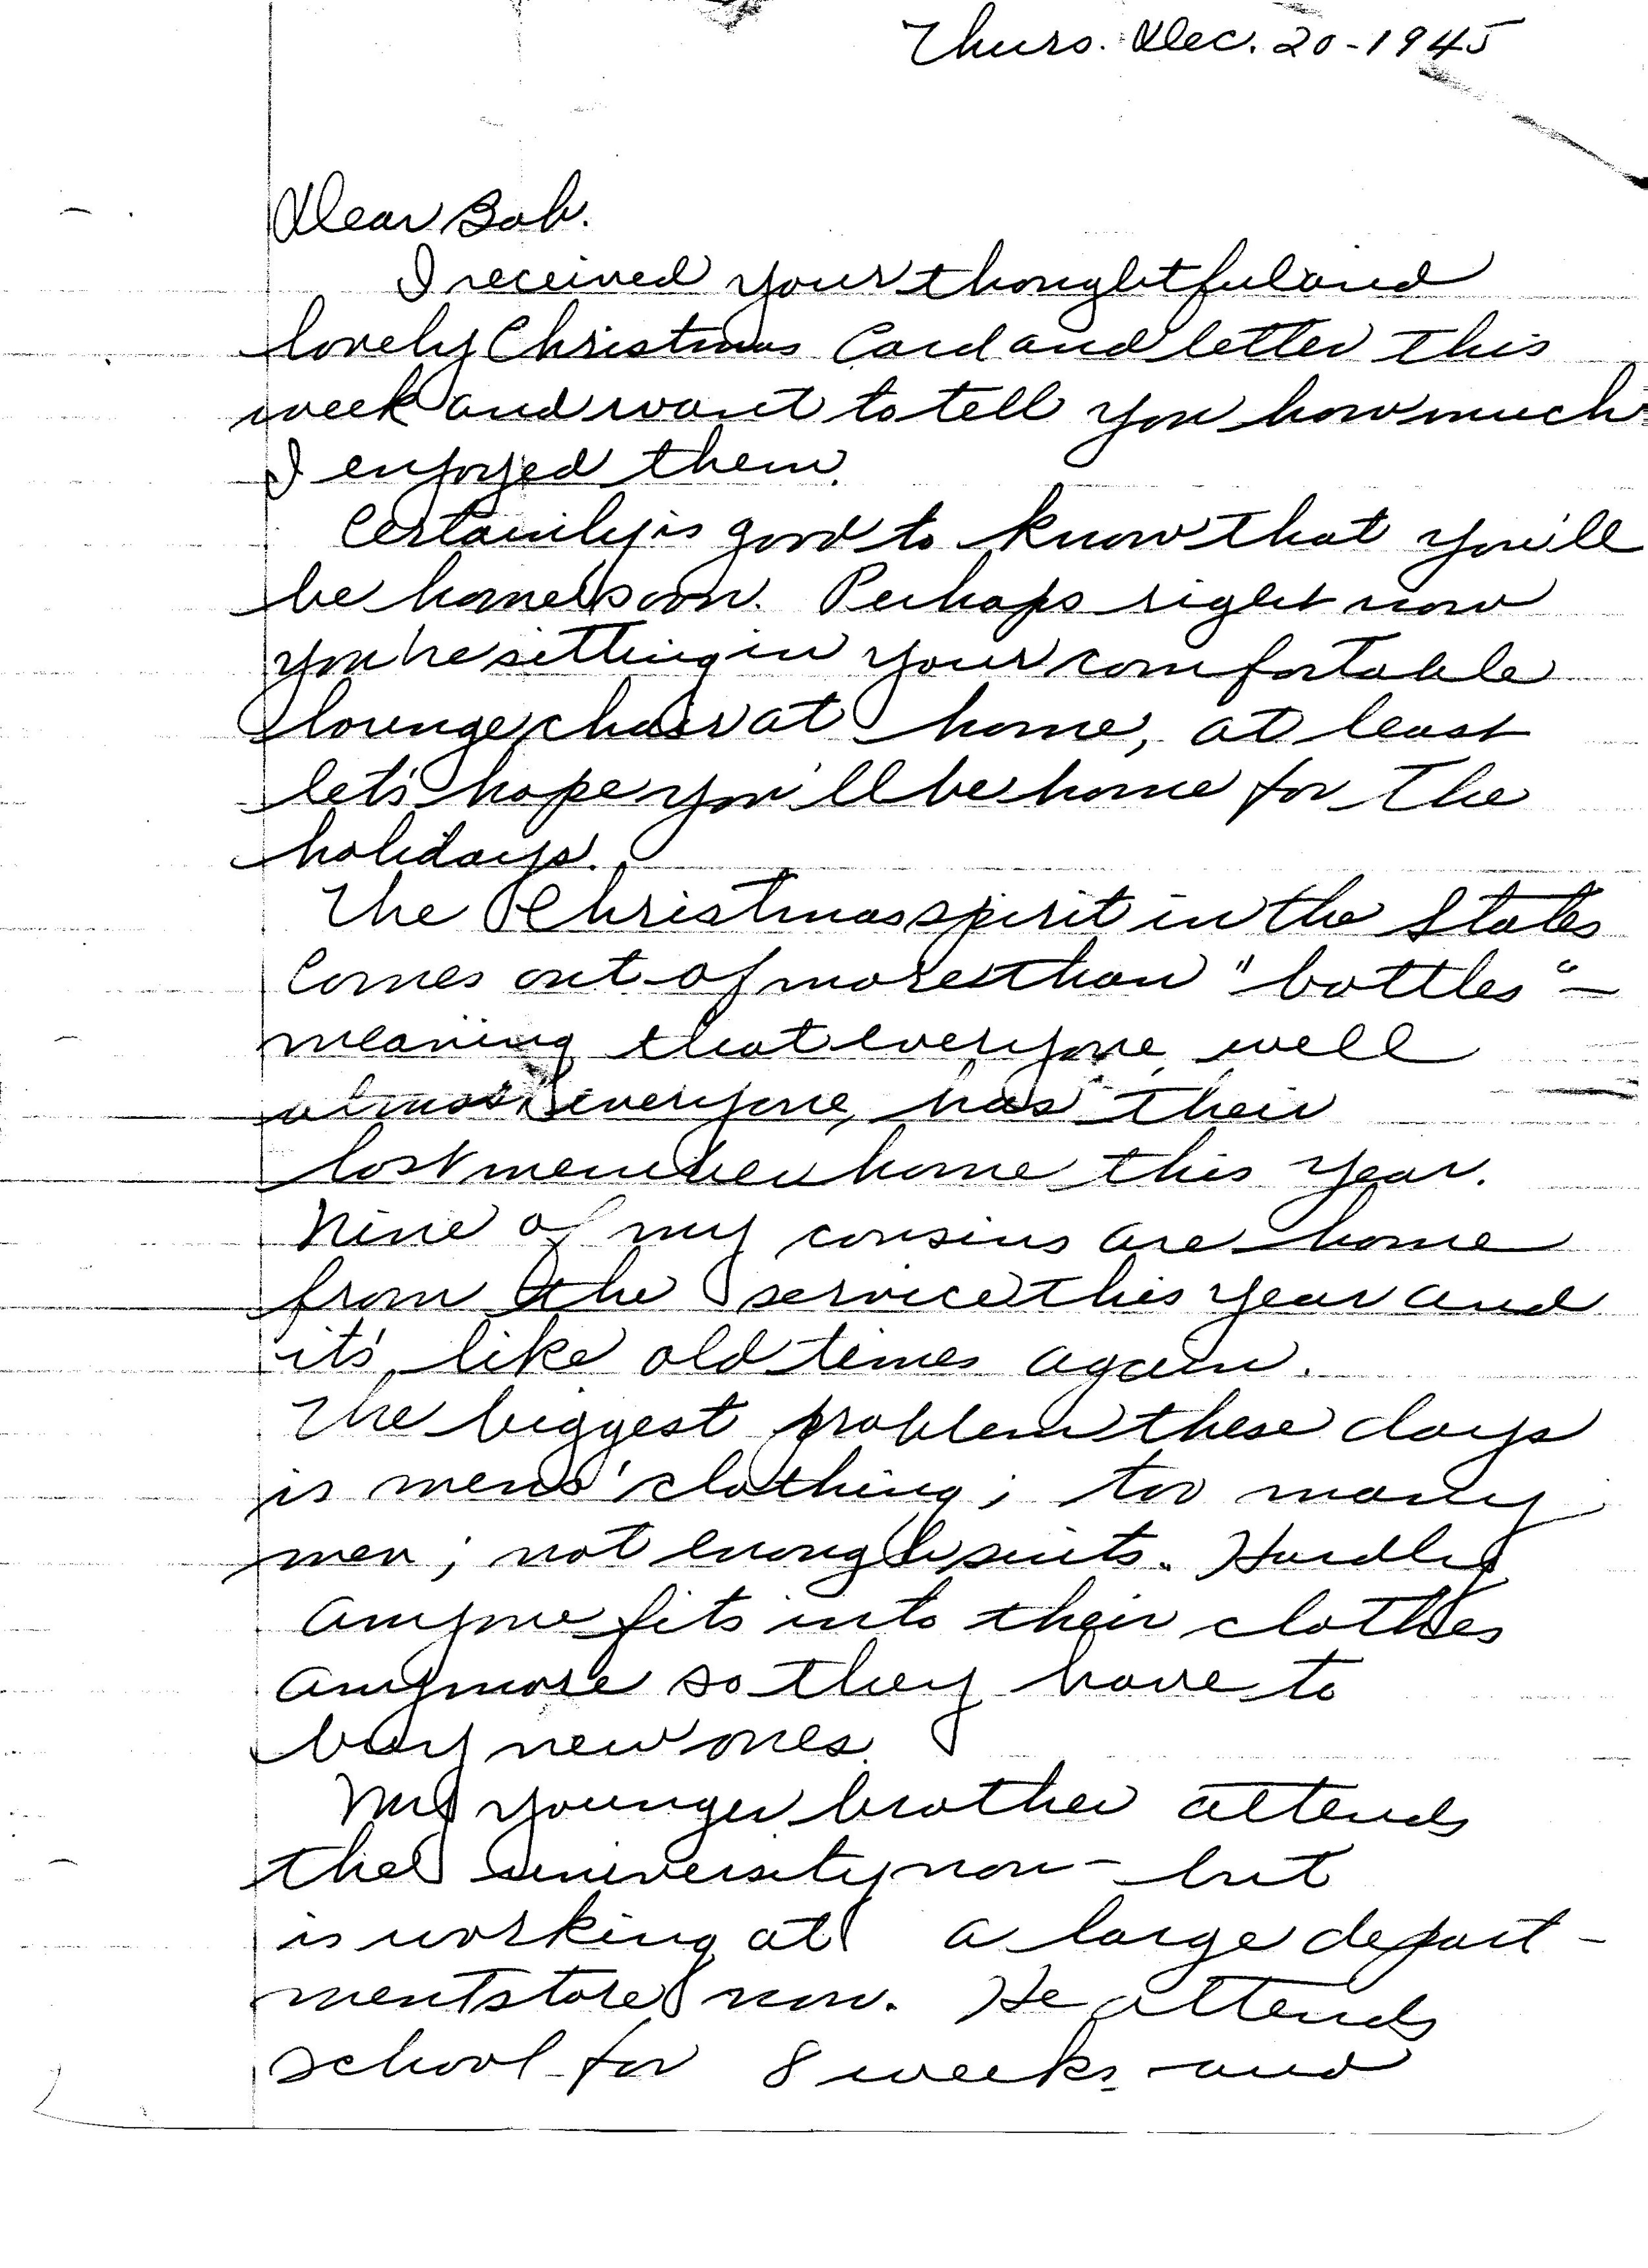 Thurs. Dec. 20-1945
Dear Bob.
I received your thoughtful and
lovely Christmas Card and letter this
week and want to tell you how much
I enjoyed them.
Certainly is good to know that you'll
be home soon. Perhaps right now
you're sitting in your comfortable
lounge chair at home, at least
let's hope you'll be home for the
holidays.
The Christmas spirit in the States
Comes out of more than "bottles" -
meaning that everyone, well
almost everyone, has their
lost member home this year.
Nine of my cousins are home
from the service this year and
it's like old times again.
The biggest problem these days
is mens' clothing; too many
men; not enough suits. Hardly
anyone fits into their clothes
anymore so they have to
buy new ones.
My younger brother attends
the university now - but
is working at a large depart-
ment store now. He attends
school for 8 weeks and